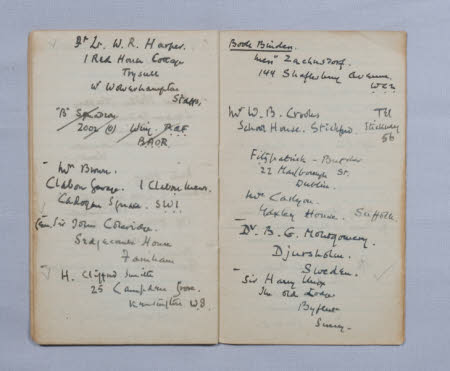 Dr Lr. W. R. Harper.
1 Red House Cottage
Trysull
w Wolverhampton
Staffs.
"B" Squadron
2002 (0) Wing. RAF
BAOR
Mr Brown.
Clabon Garage. 1 Clabon Mews.
Cadogan Square. SW1
Sir John Coleridge
Sedgecombe House
Farnham
H. Clifford Smith
25 Campden Grove.
Kensington W8
Book Binder.
Messrs Zaehnsdorf.
144 Shaftesbury Avenue.
WC2
Mr W. B. Crookes Tel
School House. Stickford. Stickney
56
Fitzpatrick - Butcher
22 Marlborough St.
Dublin.
Mrs Caslyon.
Yaxley House. Suffolk.
Dr B. G. Montgomery.
Djursholm.
Sweden.
Sir Harry
The old
Byfleet
Surrey.